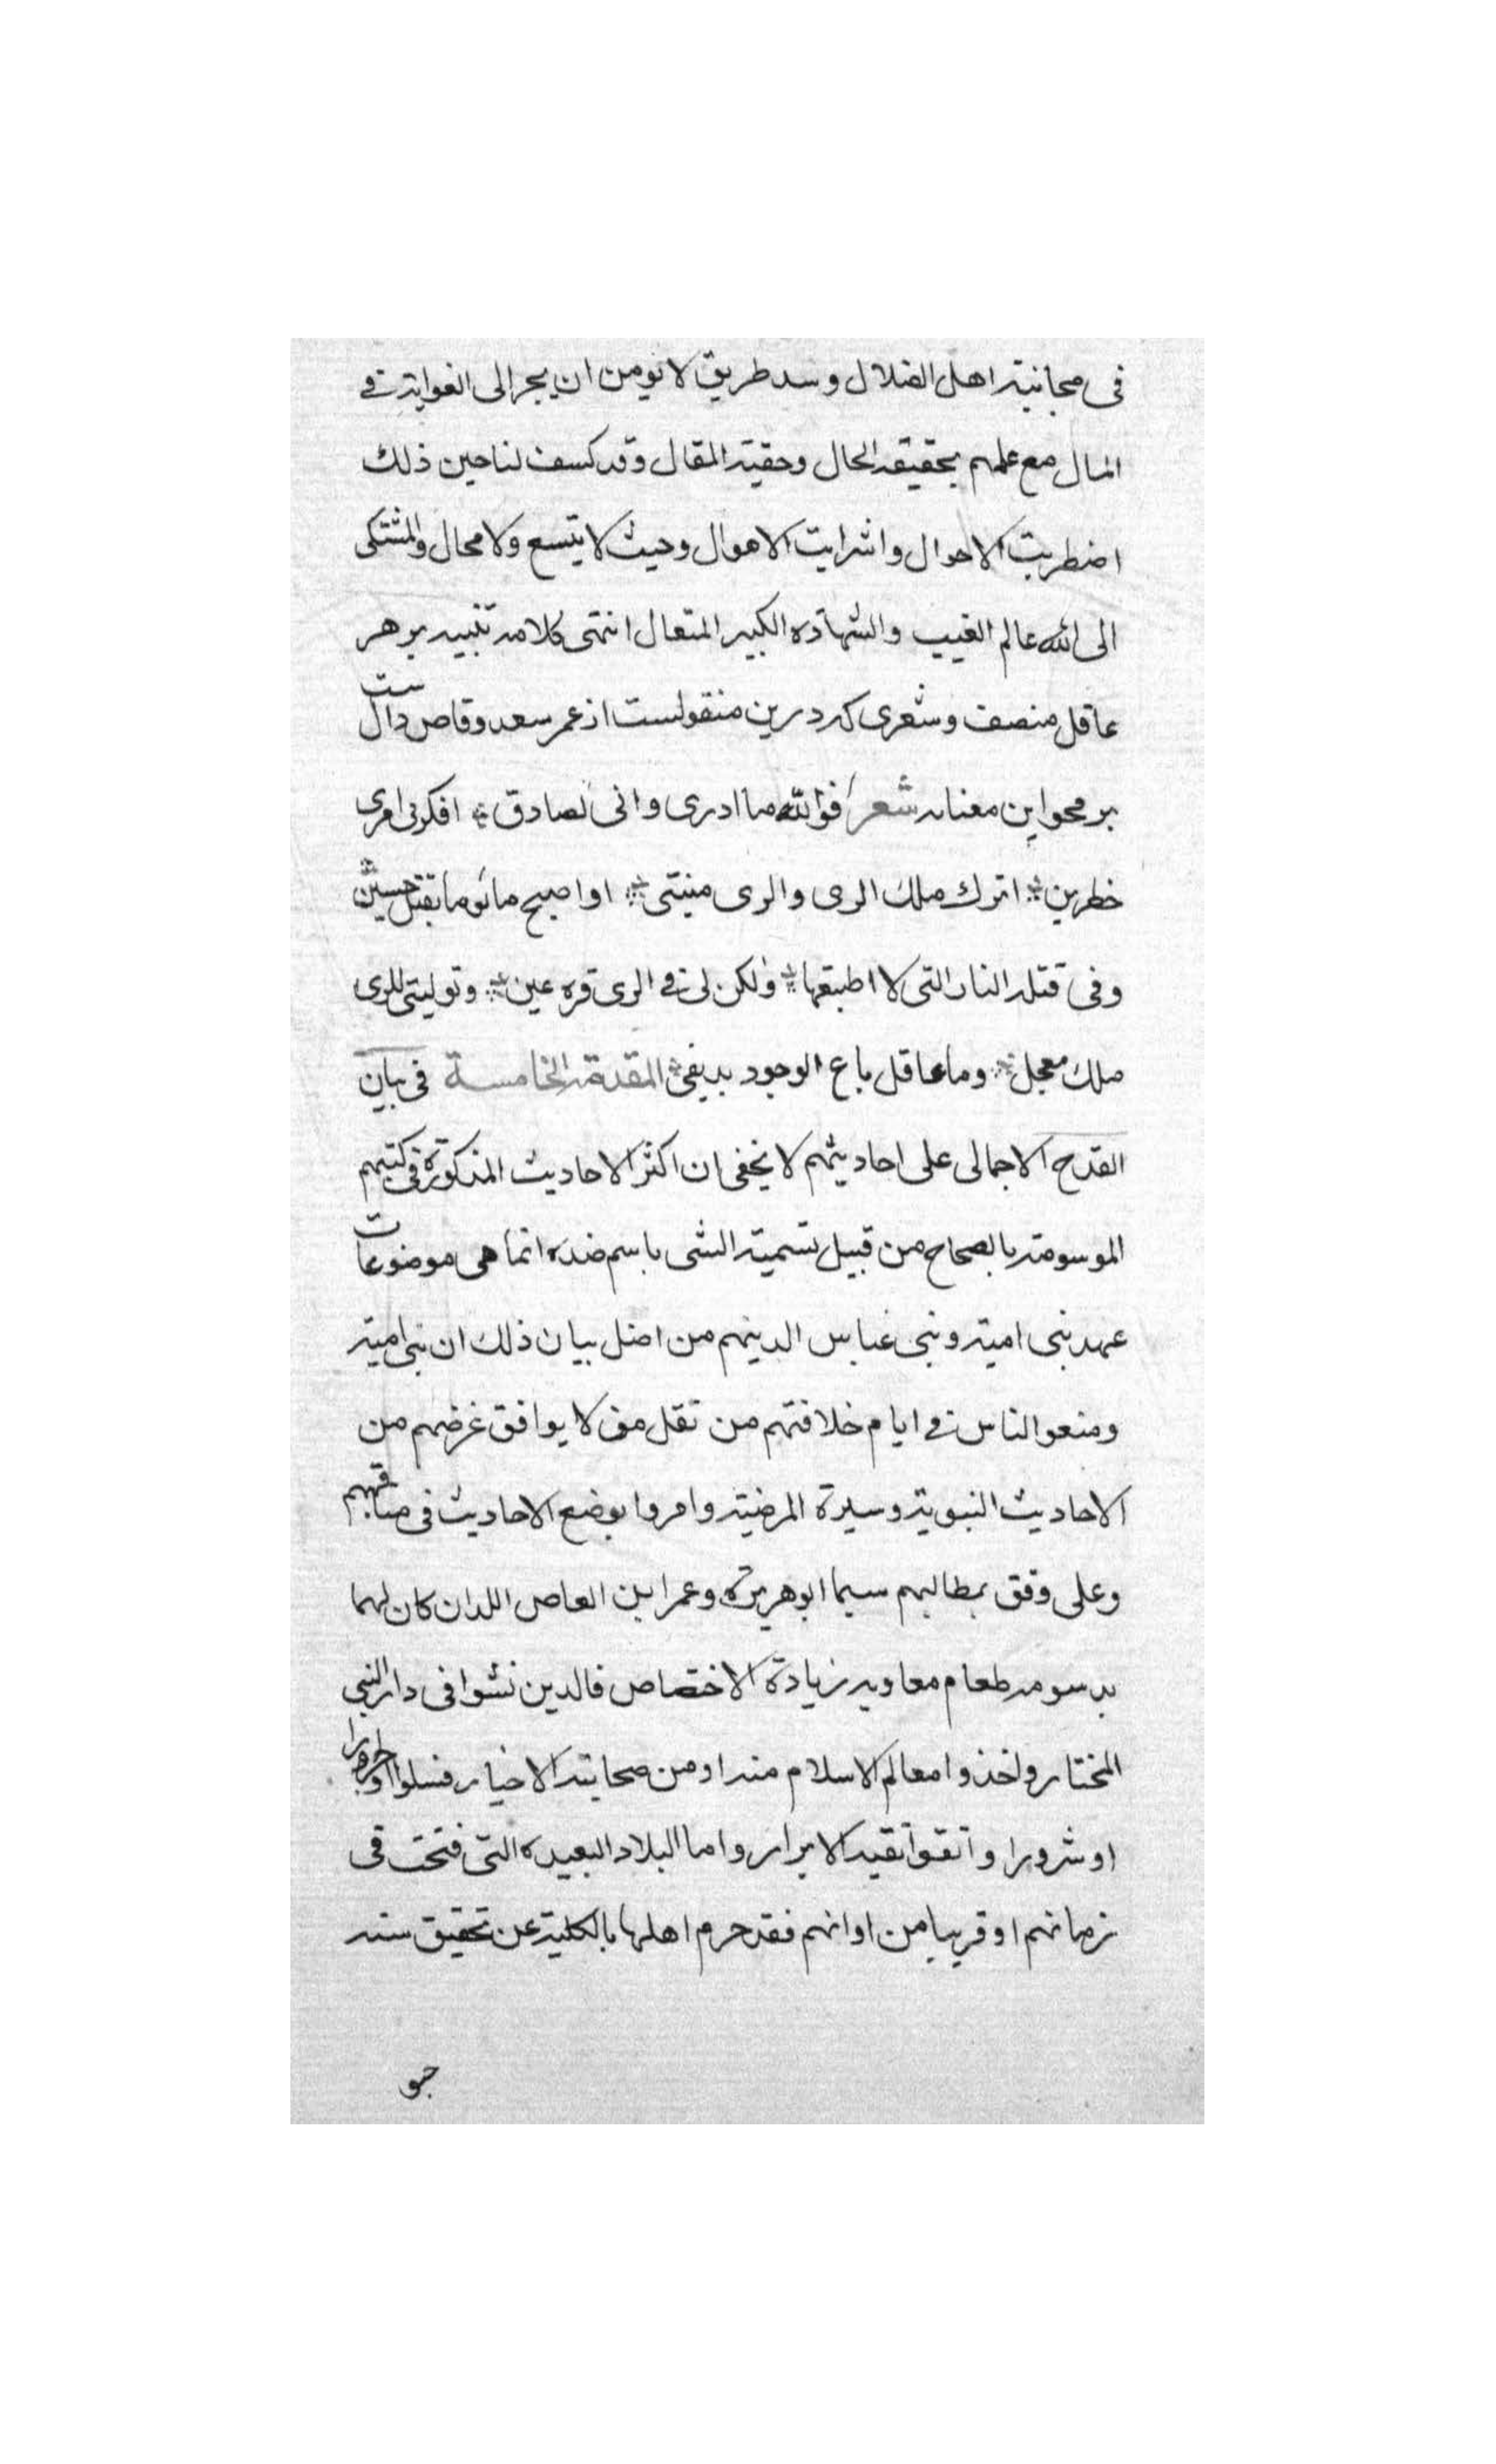 فی مجانبة اهل الضلال وسد طریق لا یومن ان یجر الی الغوایة فی
المال مع علمهم بحقیقه الحال وحقیة المقال وقد کسف لنا حین ذلك
اضطربت الاحوال واشرابت الاهوال وحیث لا یتسع ولا محال والمشتکی
الی الله عالم الغیب والشهادة الکبیر المتعال انتهی کلامه تنبیه بر هر
عاقل منصف وشعری که درین منقولست از عمر سعد وقاص دالست
بر محو این معناه شعر فوالله ما ادری وانی لصادق افکر فی امری
خطرین اترك ملك الری والری منیتی او اصبح ماثوما بقتل حسین
وفی قتله النار التی لا اطیقها ولکن لی فی الری قره عین وتولیتی للری
ملك معجل وما عاقل باع الوجود بدیفی المقدمة الخامسة فی بیان
القدح الاجمالی علی احادیثهم لا یخفی ان اکثر الاحادیث المذکورة فی کتبهم
الموسومة بالصحاح من قبیل تسمیة الشی باسم ضده انما هی موضوعات
عهد بنی امیة وبنی عباس الدینهم من اضل بیان ذلك ان بنی امیة
ومنعو الناس فی ایام خلافتهم من نقل مو لا یوافق غرضهم من
الاحادیث النبویة وسیرة المرضیة وامروا بوضع الاحادیث فی مناقبهم
وعلی وفق بمطالبهم سیما ابو هریرة وعمر ابن العاص اللدان کان لهما
بدسومه طعام معاویه زیادة الاختصاص فالدین نشوا فی دار النبی
المختار واخذوا معالم الاسلام منه او من صحابته الاخیار فسلوا
او شرورا واتقوا تقیه الابرار واما البلاد البعیده التی فتحت فی
زمانهم او قریبا من اوانهم فقد حرم اهلها بالکلیة عن تحقیق سنه